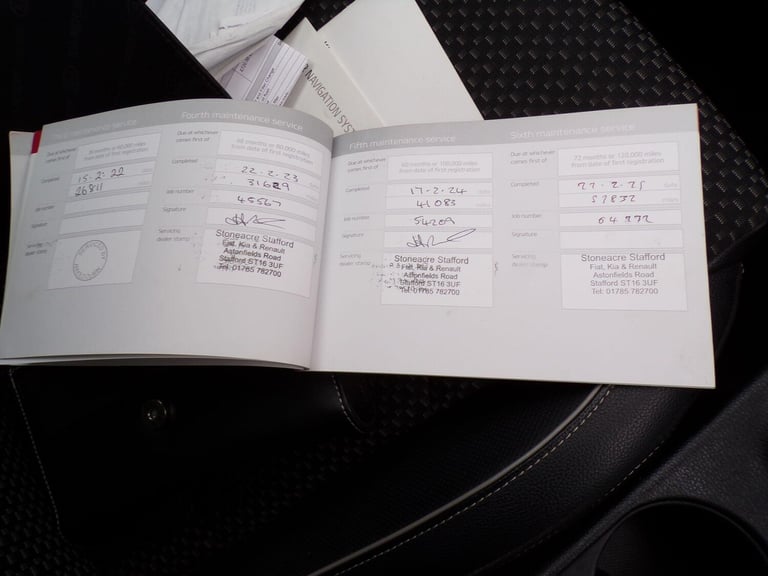 NAVIGATION SYST
maintenance service
Due at whichever
comes first of
months or 60,000 miles
from date of first registration
Completed
15-2-22
26811
Job number
Signature
Servicing
dealer stamp
Fourth maintenance service
months or 80,000 miles
from date of first registration
22-2-23 date
31629 miles
45567
Stoneacre Stafford
Fiat, Kia & Renault
Astonfields Road
Stafford ST16 3UF
Tel: 01785 782700
Fifth maintenance service
Due at whichever
comes first of
60 months or 100,000 miles
from date of first registration
Completed
17-2-24 date
41083 miles
Job number
54209
Signature
Servicing
dealer stamp
Stoneacre Stafford
Fiat, Kia & Renault
Astonfields Road
Stafford ST16 3UF
Tel: 01785 782700
Sixth maintenance service
Due at whichever
comes first of
72 months or 120,000 miles
from date of first registration
Completed
date
miles
Job number
Signature
Servicing
dealer stamp
Stoneacre Stafford
Fiat, Kia & Renault
Astonfields Road
Stafford ST16 3UF
Tel: 01785 782700